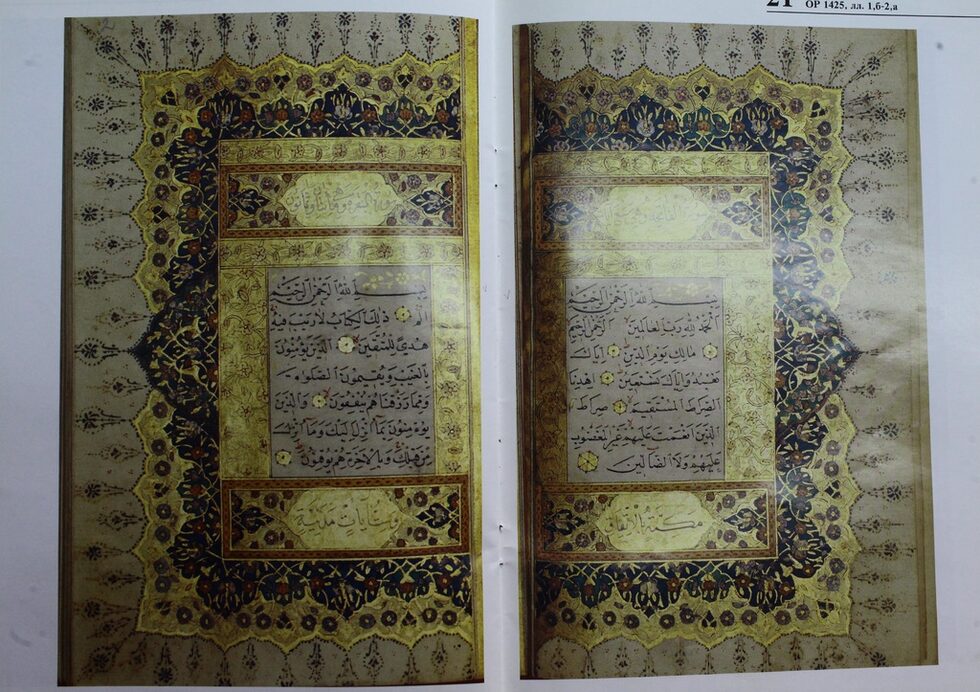 21 ОР 1425, лл. 1,б-2,а
سورة الفاتحة وهي سبع
بسم الله الرحمن الرحيم
الحمد لله رب العالمين الرحمن الرحيم
مالك يوم الدين اياك
نعبد واياك نستعين اهدنا
الصراط المستقيم صراط
الذين انعمت عليهم غير المغضوب
عليهم ولا الضالين
مكية بالاتفاق
سورة البقرة
بسم الله الرحمن الرحيم
الم ذلك الكتاب لا ريب فيه
هدى للمتقين الذين يؤمنون
بالغيب ويقيمون الصلوة
ومما رزقناهم ينفقون والذين
يؤمنون بما انزل اليك وما انزل
من قبلك وبالاخرة هم يوقنون
وست ايات مدنية